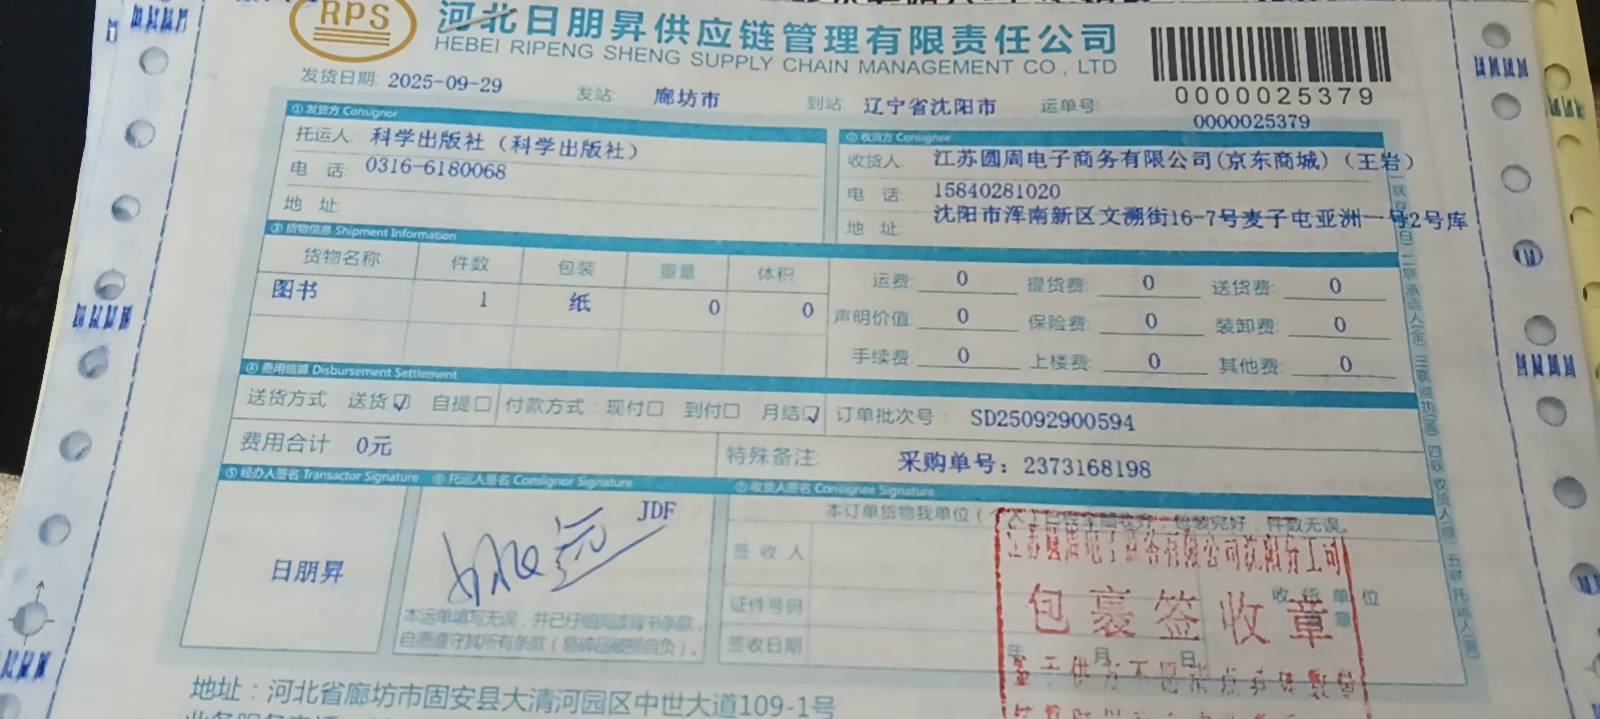 RPS
河北日朋昇供应链管理有限责任公司
HEBEI RIPENG SHENG SUPPLY CHAIN MANAGEMENT CO., LTD
0000025379
发货日期: 2025-09-29 发站: 廊坊市 到站: 辽宁省沈阳市 运单号: 0000025379
①发货方 Consignor
托运人: 科学出版社（科学出版社）
电 话: 0316-6180068
地 址:
②收货方 Consignee
收货人: 江苏圆周电子商务有限公司(京东商城)（王岩）
电 话: 15840281020
地 址: 沈阳市浑南新区文溯街16-7号麦子屯亚洲一号2号库
③货物信息 Shipment Information
货物名称 件数 包装 重量 体积
图书 1 纸 0 0
运费: 0 提货费: 0 送货费: 0
声明价值: 0 保险费: 0 装卸费: 0
手续费: 0 上楼费: 0 其他费: 0
④费用结算 Disbursement Settlement
送货方式：送货☑ 自提□ 付款方式：现付□ 到付□ 月结☑ 订单批次号： SD25092900594
费用合计 0元 特殊备注: 采购单号：2373168198
⑤经办人签名 Transactor Signature
日朋昇
⑥托运人签名 Consignor Signature
JDF
本运单填写无误，并已仔细阅读背书条款，
自愿遵守其所有条款（易碎品破损自负）。
⑦收货人签名 Consignee Signature
本订单货物我单位（个人）包装完好，件数无误。
签收人
证件号码
签收日期 年 月 日
收货单位
章
江苏圆周电子商务有限公司沈阳分公司
包裹签收章
地址：河北省廊坊市固安县大清河园区中世大道109-1号